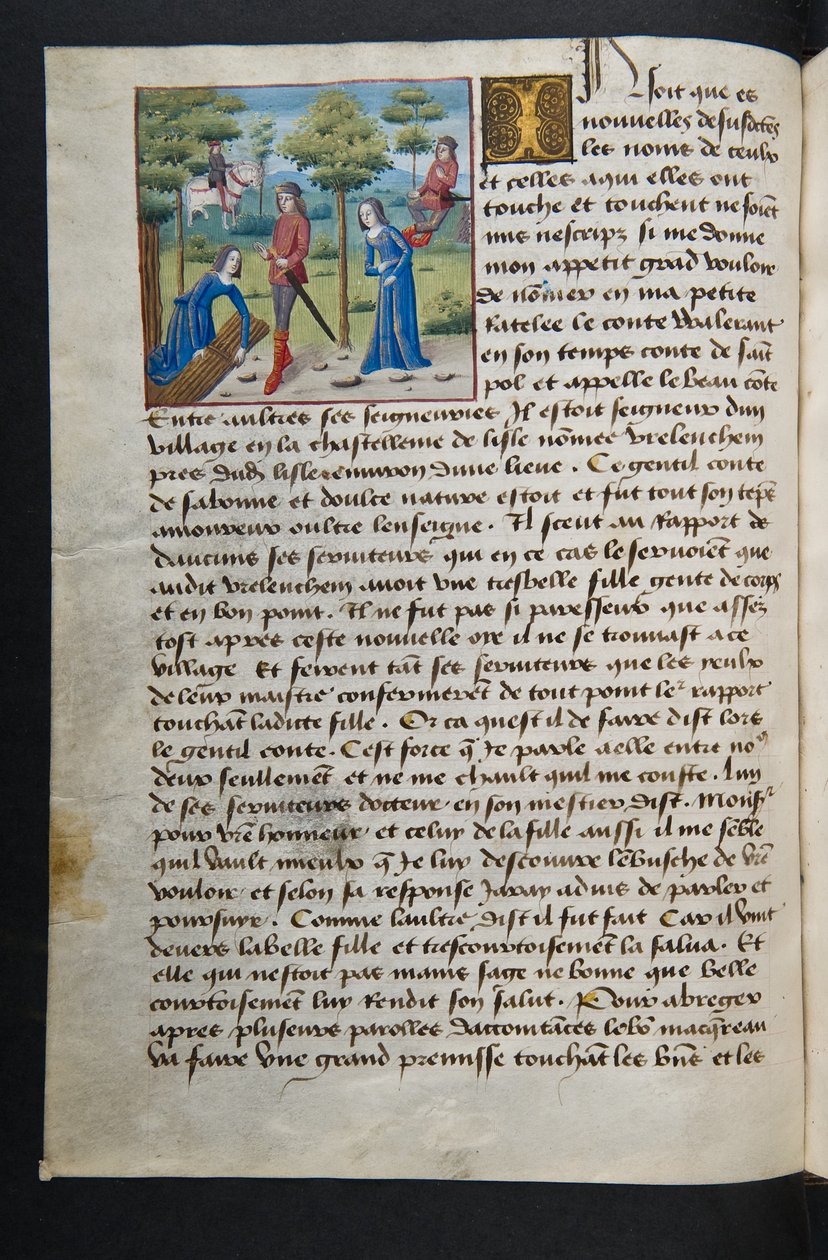 IA soit que es
nouuelles desusdctes
les noms de ceulx
et celles aqui elles ont
touche et touchent ne soiēt
mis nescripz si me donne
mon appetit grād vouloir
de nōmer en ma petite
Ratelee le conte walerant
en son temps conte de saīt
pol et appelle le beau cōte
Entre aultres ses seigneuries Il estoit seigneur dun
village en la chastellenie de lisle nōmee vrelenchem
pres dudᵗ lisle enuiron dune lieue. Ce gentil conte
de sa bonne et doulce nature estoit et fut tout son tēps
amoureux oultre lenseigne. Il sceut au Rapport de
daucuns ses seruiteurs qui en ce cas le seruoiēt que
audit vrelenchem auoit vne tresbelle fille gente de corps
et en bon point. Il ne fut pas si paresseux que assez
tost apres ceste nouuelle oye il ne se trouuast a ce
village Et feirent tāt ses seruiteurs que les yeulx
de leur maistre confermerēt de tout point leʳ rapport
touchāt ladicte fille. Or ca quest il de faire dist lors
le gentil conte. Cest force q̄ Je parle a elle entre noᵘˢ
deux seullemēt et ne me chault quil me couste. Lun
de ses seruiteurs docteur en son mestier dist. Monsʳ
pour vr̄e honneur et celuy de la fille aussi il me sēble
quil vault mieulx q̄ Je luy descouure lēbusche de vr̄e
vouloir et selon sa response Jaray aduis de parler et
poursuyr. Comme laultre dist il fut fait Car il vint
deuers la belle fille et trescourtoisemēt la salua. Et
elle qui nestoit pas mains sage ne bonne que belle
courtoisemēt luy Rendit son salut. Pour abreger
apres pluseurs parolles daccointāces le bō macq̄reau
va faire vne grand premisse touchāt les bn̄s et les